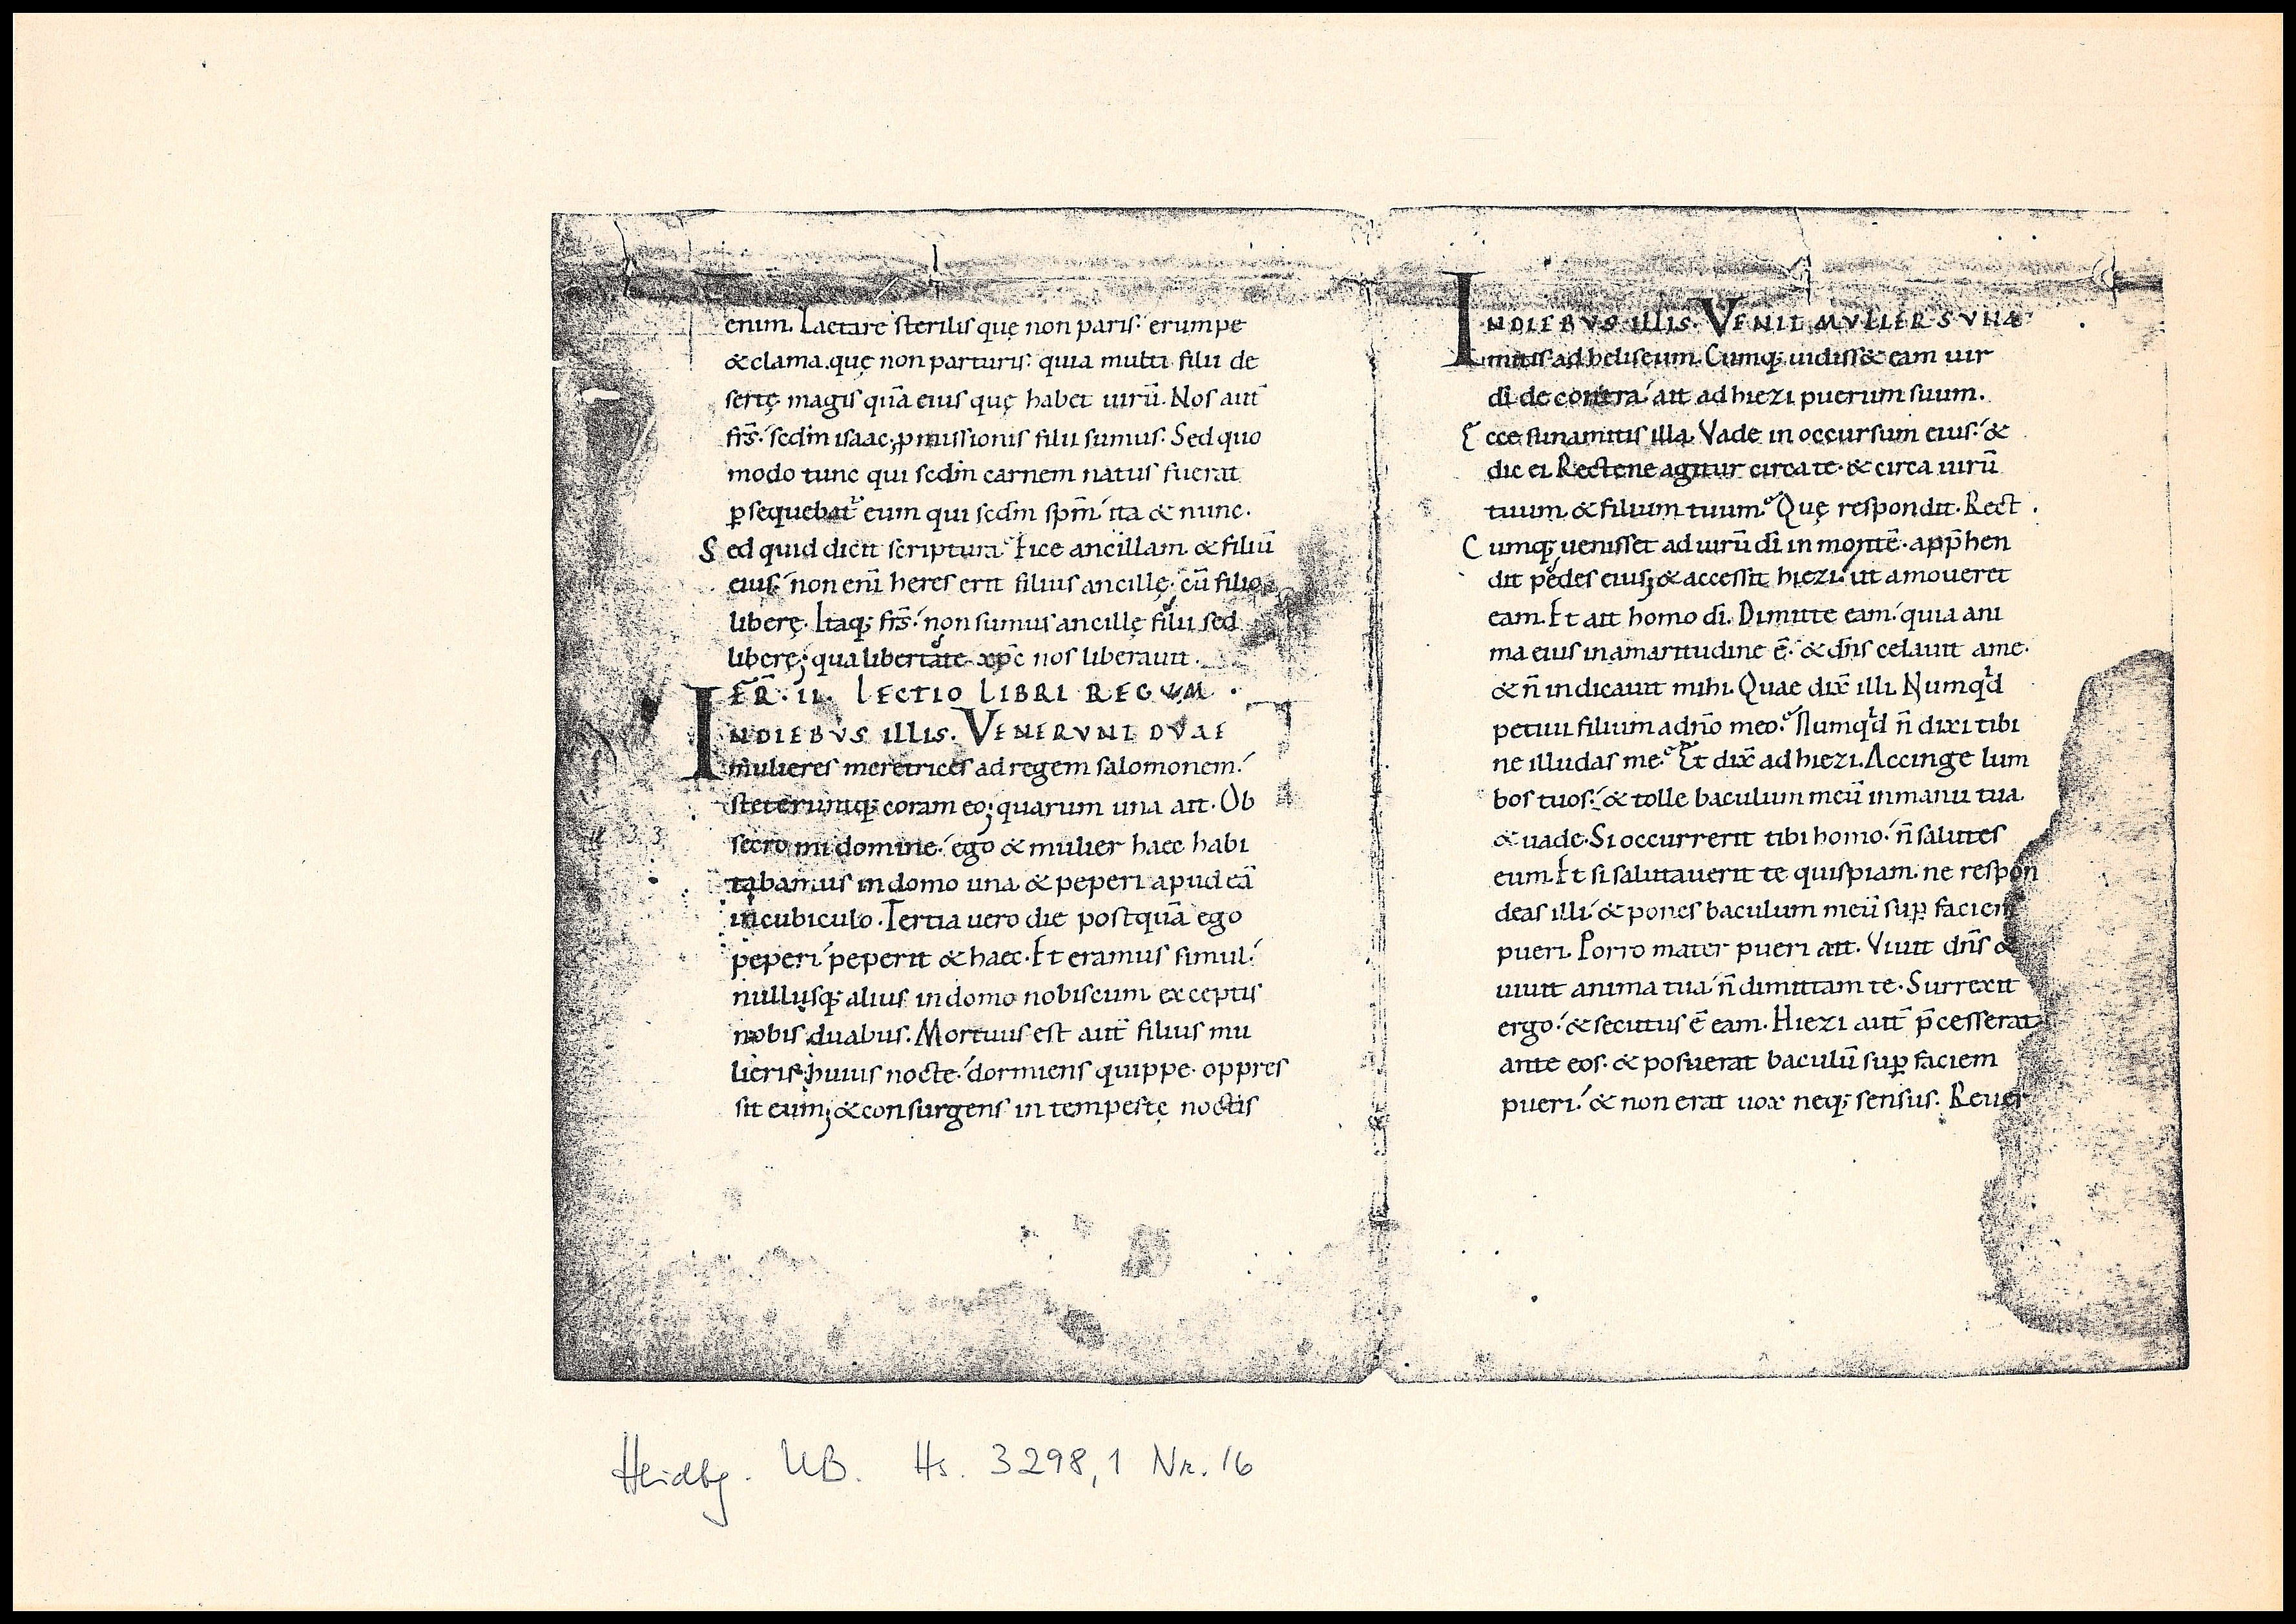 enim. Laetare sterilis quę non paris. erumpe
& clama. quę non parturis. quia multi filii de
sertę. magis quā eius quę habet uirū. Nos aut̄
fr̄s. scdm̄ isaac. ꝓmissionis filii sumus. Sed quo
modo tunc qui scdm̄ carnem natus fuerat
ꝑsequebat᷑ eum qui scdm̄ sp̄m. ita & nunc.
Sed quid dicit scriptura? Eice ancillam & filiū
eius. non eni̅ heres erit filius ancillę. cū filio
liberę. Itaq; fr̄s. non sumus ancillę filii sed
liberę; qua libertate xp̄c nos liberauit.
FER̄. II. LECTIO LIBRI REGUM.
IN DIEBVS ILLIS. VENERVNT DVAE
mulieres meretrices ad regem salomonem.
steteruntq; coram eo; quarum una ait. Ob
secro mi domine. ego & mulier haec habi
tabamus in domo una. & peperi apud eā
in cubiculo. Tertia uero die postquā ego
peperi. peperit & haec. Et eramus simul.
nullusq; alius in domo nobiscum exceptis
nobis duabus. Mortuus est aut̄ filius mu
lieris huius nocte. dormiens quippe oppres
sit eum; & consurgens in tempestę noctis
IN DIEBVS ILLIS. VENIT MVLIER SVNA
mitis ad heliseum. Cumq; uidiss& eam uir
dī de contra. ait ad hiezi puerum suum.
Ecce sunamitis illa. Vade in occursum eius. &
dic ei. Rectene agitur circa te. & circa uirū
tuum & filium tuum? Quę respondit. Rect.
Cumq; uenisset ad uirū dī in montē. app̄hen
dit pedes eius; & accessit hiezi. ut amoueret
eam. Et ait homo dī. Dimitte eam. quia ani
ma eius in amaritudine ē. & dn̄s celauit a me.
& n̄ indicauit mihi. Quae dix̄ illi. Numqd
petiui filium a dn̄o meo? Numqd n̄ dixi tibi
ne illudas me? Et dix̄ ad hiezi. Accinge lum
bos tuos. & tolle baculum meū in manu tua.
& uade. Si occurrerit tibi homo. n̄ salutes
eum. Et si salutauerit te quispiam. ne respon
deas illi. & pones baculum meū suꝑ faciem
pueri. Porro mater pueri ait. Viuit dn̄s &
uiuit anima tua. n̄ dimittam te. Surrexit
ergo. & secutus ē eam. Hiezi aut̄ p̄cesserat
ante eos. & posuerat baculū suꝑ faciem
pueri. & non erat uox neq; sensus. Reuer
Heidbg. UB. Hs. 3298,1 Nr. 16